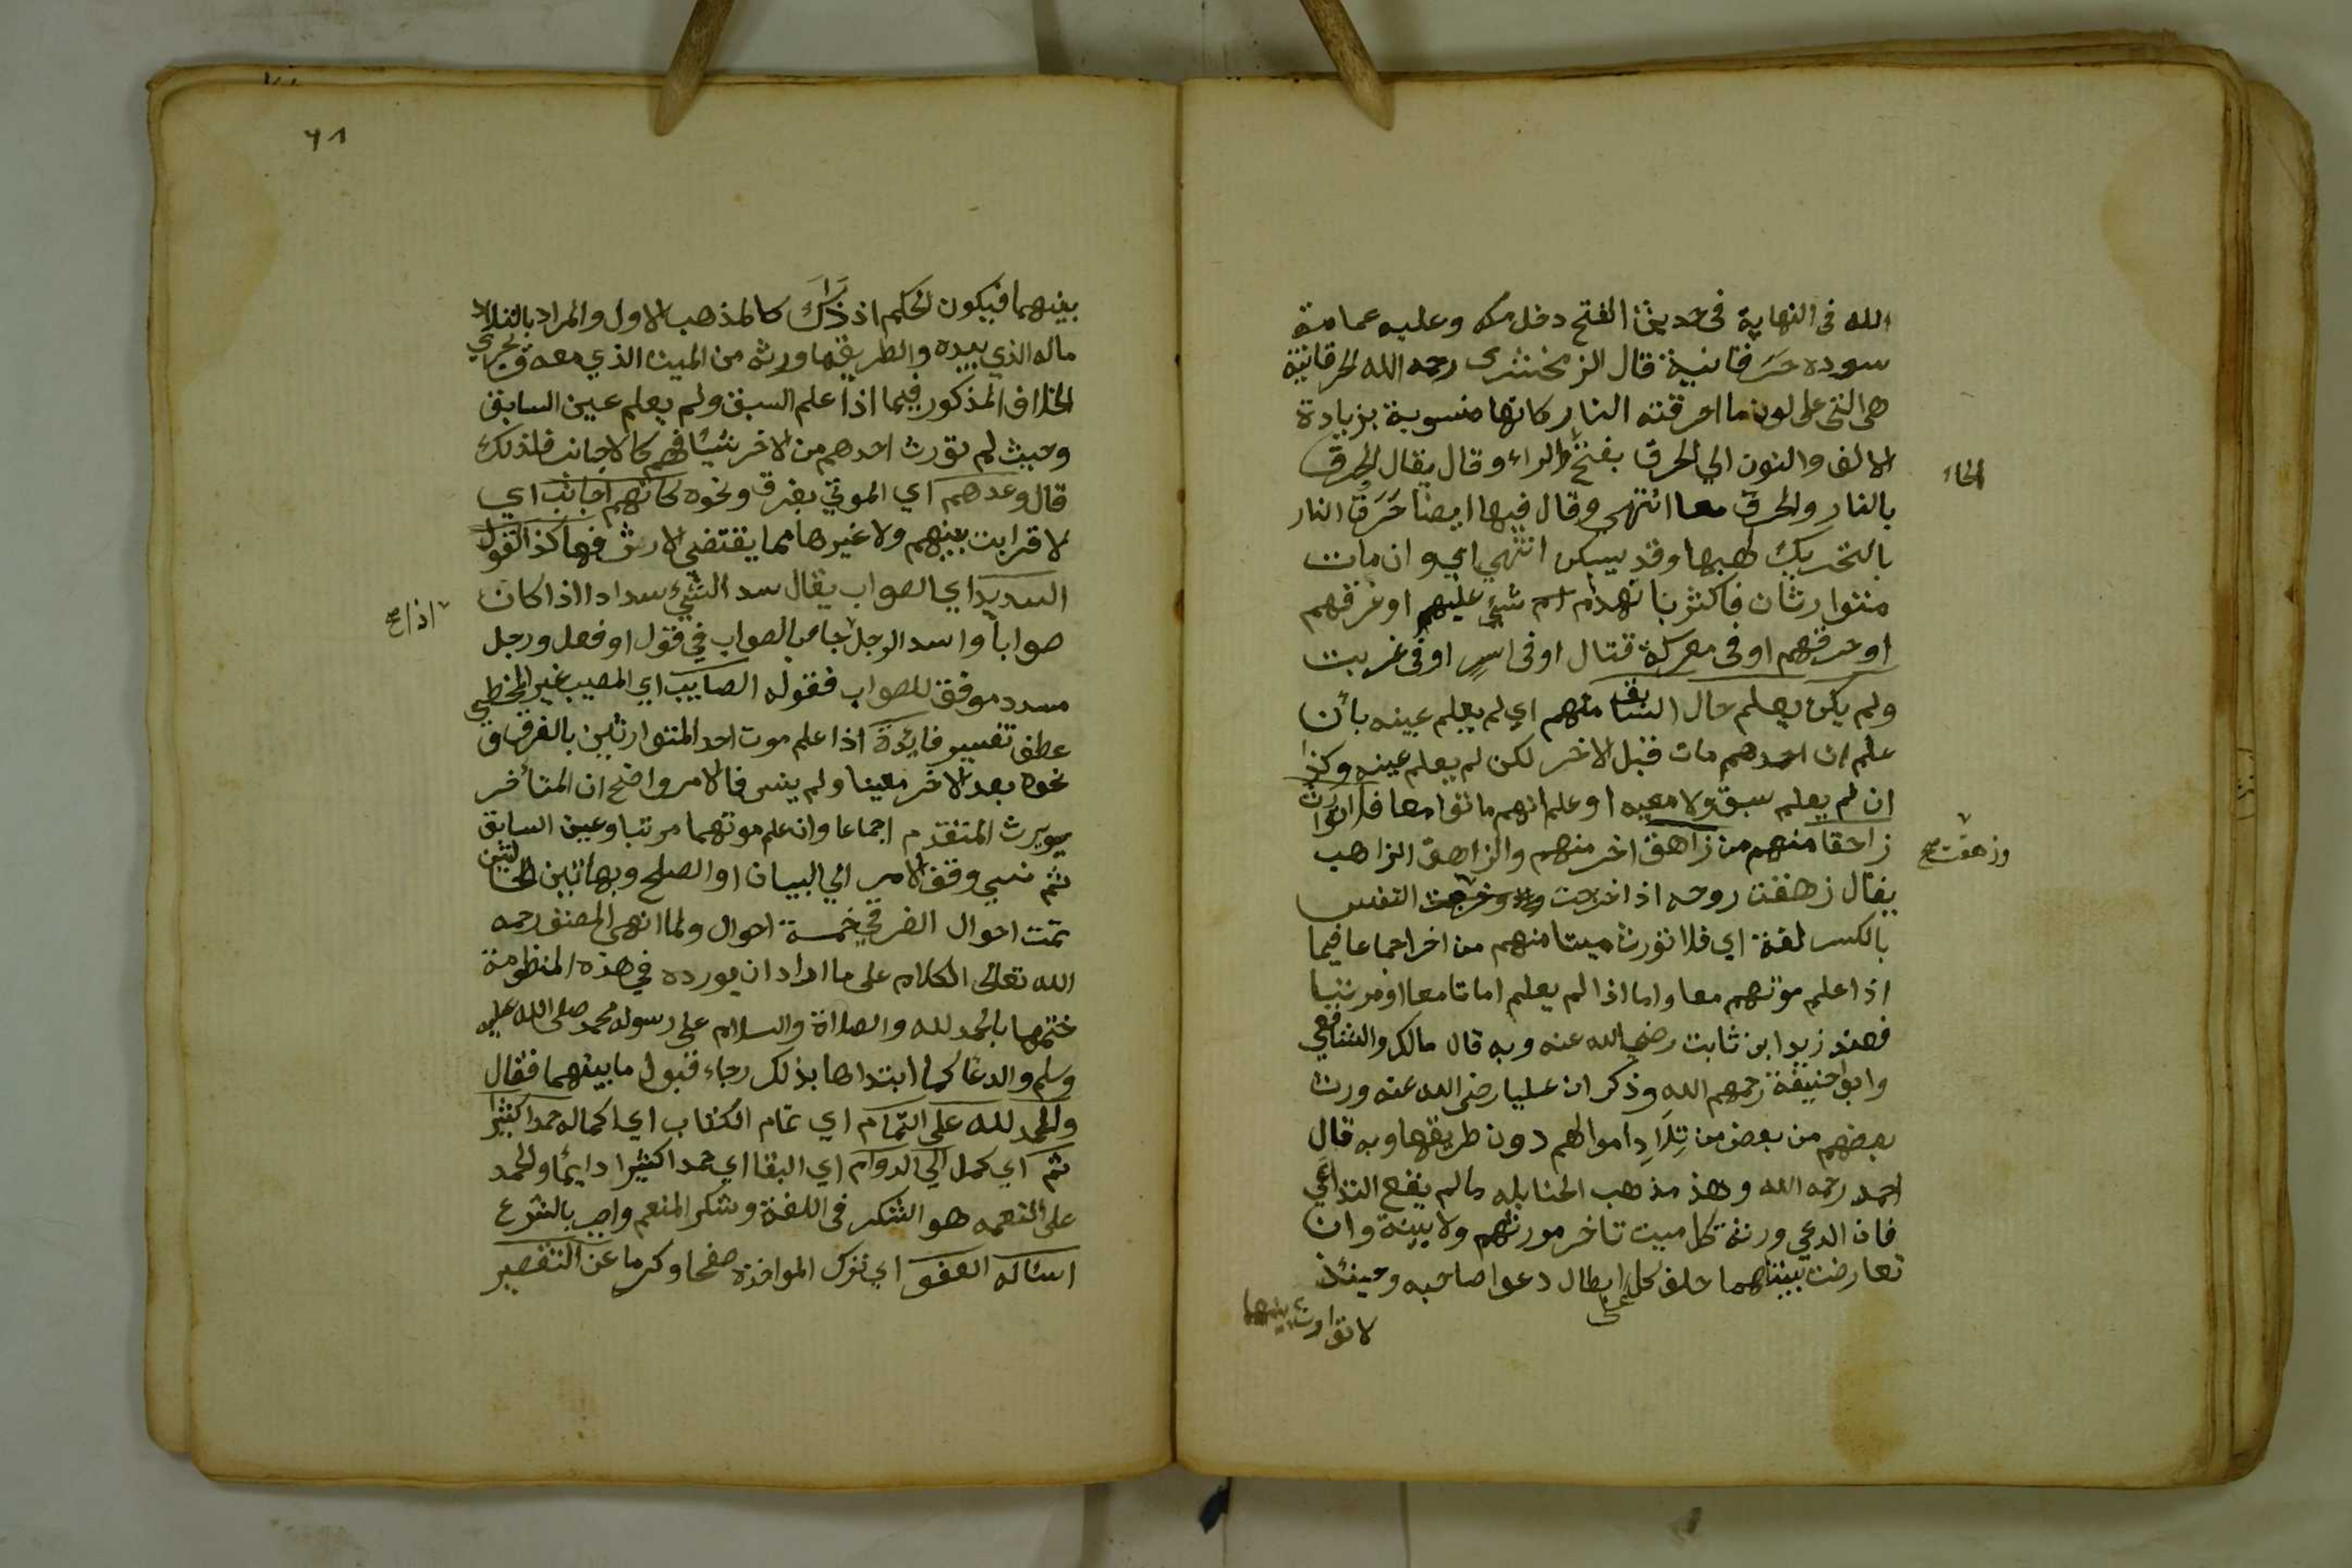 الله في النهاية في حديث الفتح دخل مكه وعليه عمامة
سوده حَرَقانية قال الزمخشرى رحمه الله الحرقانية
هي التى على لون ما احرقته النار كانها منسوبة بزيادة
الالف والنون الي الحرق بفتح والراء وقال يقال الحرق
الحاء
بالنار والحرق معا انتهي وقال فيها ايضا حَرَق النار
بالتحريك لهبها وقد يسكن انتهي اي وان مات
متوارثان فاكثر بانهدام شئ عليهم او غرقهم
او حرقهم او في معركة قتال او في اسرٍ او في غربت
ولم يكن يعلم حال السابق منهم اي لم يعلم عينه بأن
علم ان احدهم مات قبل الاخر لكن لم يعلم عينه وكذا
ان لم يعلم سبق ولا معيه او علم انهم ماتوا معا فلا توارث
زاهقا منهم من زاهق اخر منهم والزاهق الذاهب
وزهقت صح
يقال زهقت روحه اذا خرجت وخرجت النفس
بالكسر لغة اي فلا تورث ميتا منهم من اخر اجماعا فيما
اذا علم موتهم معا واما اذا لم يعلم اماتا معا او مرتبا
فعند زيد ابن ثابت رضي الله عنه وبه قال مالك والشافعي
وابو حنيفة رحمهم الله وذكر ان عليا رضي الله عنه ورث
بعضهم من بعض من تِلَادِ اموالهم دون طريفها وبه قال
احمد رحمه الله وهذ مذهب الحنابله مالم يقع التداعي
فان ادعي ورثة كل ميت تاخر مورثهم ولا بينة وان
تعارضت بينتاهما حلف كل على ابطال دعوا صاحبه وحينئذ
لا توارث بينهما
٦١
بينهما فيكون الحكم اذ ذَّاكَ كالمذهب الاول والمراد بالتلاد
ماله الذي بيده والطريق ما ورثه من الميت الذي معه ويجري
الخلاف المذكور فيما اذا علم السبق ولم يعلم عين السابق
وحيث لم تورث احدهم من الاخر شيئا فهم كالاجانب فلذلك
قال وعدهم اي الموتي بغرق ونحوه كانهم اجانب اي
لا قرابت بينهم ولا غيرها مما يقتضي الارث فهاكذا القول
السديد اي الصواب يقال سد الشيئ سدادا اذا كان
صوابا واسد الرجل جا بالصواب في قول او فعل ورجل
اذا صح
مسدد موفق للصواب فقوله الصايب اي المصيب غير المخطي
عطف تفسير فايدة اذا علم موت احد المتوارثين بالغرق و
نحوه بعد الاخر معينا ولم ينس فالامر واضح ان المتأخر
يرث المتقدم اجماعا وان علم موتهما مرتبا وعين السابق
ثم نسي وقف الامر الي البيان او الصلح وبهاتين الحالتين
تمت احوال الغرقي خمسة احوال ولما انهي المصنف رحمه
الله تعالى الكلام على ما اراد ان يورده في هذه المنظومة
ختمها بالحمد لله والصلاة والسلام على رسوله محمد صلى الله عليه
وسلم والدعا كما ابتداها بذلك رجاء قبول ما بينهما فقال
والحمد لله على التمام اي تمام الكتاب اي اكماله حمدا كثيرا
تم اي كمل الي الدوام اي البقا اي حمدا كثيرا دايما والحمد
على النعمه هو الشكر في اللغة وشكر المنعم واجب بالشرع
اساله العفو اي ترك المواخذه صفحا وكرما عن التقصير